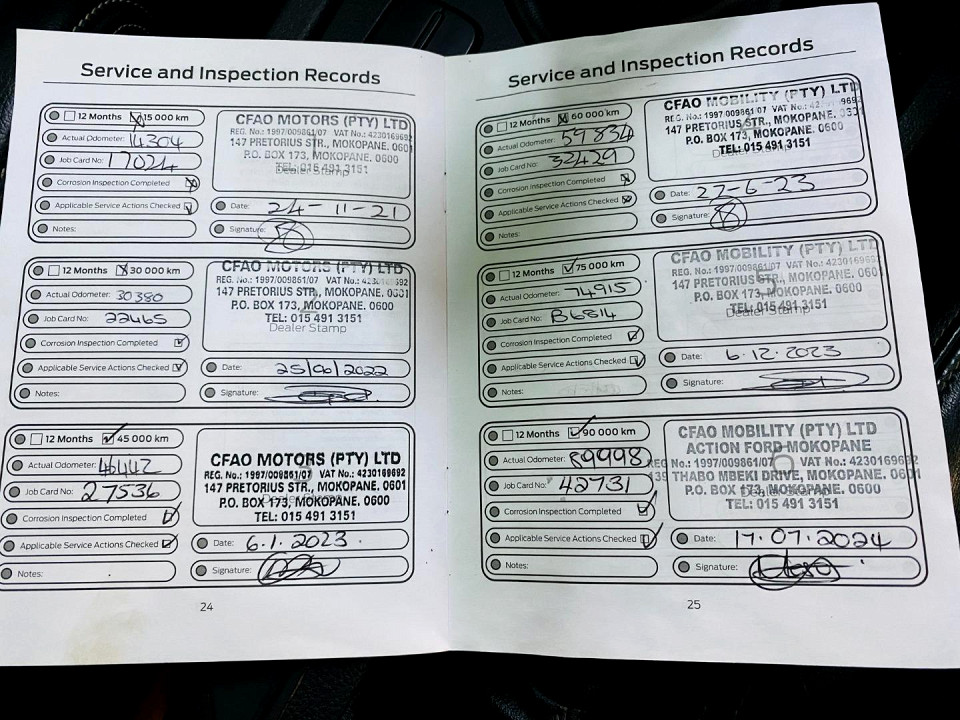 Service and Inspection Records
12 Months 15 000 km
Actual Odometer: 14304
Job Card No: 17024
Corrosion Inspection Completed
Applicable Service Actions Checked
Notes:
CFAO MOTORS (PTY) LTD
REG. No.: 1997/009861/07 VAT No.: 4230169692
147 PRETORIUS STR., MOKOPANE. 0600
P.O. BOX 173, MOKOPANE. 0600
TEL: 015 491 3151
Dealer Stamp
Date: 24-11-21
Signature:
12 Months 30 000 km
Actual Odometer: 30380
Job Card No: 22465
Corrosion Inspection Completed
Applicable Service Actions Checked
Notes:
CFAO MOTORS (PTY) LTD
REG. No.: 1997/009861/07 VAT No.:
147 PRETORIUS STR., MOKOPANE. 0601
P.O. BOX 173, MOKOPANE. 0600
TEL: 015 491 3151
Dealer Stamp
Date: 25/01/2022
Signature:
12 Months 45 000 km
Actual Odometer: 46442
Job Card No: 27536
Corrosion Inspection Completed
Applicable Service Actions Checked
Notes:
CFAO MOTORS (PTY) LTD
REG. No.: 1997/009861/07 VAT No.: 4230169692
147 PRETORIUS STR., MOKOPANE. 0601
P.O. BOX 173, MOKOPANE. 0600
Dealer Stamp
TEL: 015 491 3151
Date: 6.1.2023.
Signature:
24
Service and Inspection Records
12 Months 60 000 km
Actual Odometer: 59834
Job Card No: 32429
Corrosion Inspection Completed
Applicable Service Actions Checked
Notes:
CFAO MOBILITY (PTY) LTD
REG. No.: 1997/009861/07 VAT No.:
147 PRETORIUS STR., MOKOPANE.
P.O. BOX 173, MOKOPANE. 0600
TEL: 015 491 3151
Dealer Stamp
Date: 27-6-23
Signature:
12 Months 75 000 km
Actual Odometer: 74915
Job Card No: B6814
Corrosion Inspection Completed
Applicable Service Actions Checked
Notes:
CFAO MOBILITY (PTY) LTD
REG. No.: 1997/009861/07 VAT No.:
147 PRETORIUS STR., MOKOPANE. 0601
P.O. BOX 173, MOKOPANE. 0600
TEL: 015 491 3151
Dealer Stamp
Date: 6.12.2023
Signature:
12 Months 90 000 km
Actual Odometer: 89998
Job Card No: 42731
Corrosion Inspection Completed
Applicable Service Actions Checked
Notes:
CFAO MOBILITY (PTY) LTD
ACTION FORD MOKOPANE
REG No.: 1997/009861/07 VAT No.: 4230169692
139 THABO MBEKI DRIVE, MOKOPANE, 0601
P.O. BOX 173, MOKOPANE. 0600
Dealer Stamp
TEL: 015 491 3151
Date: 17.07.2024
Signature:
25